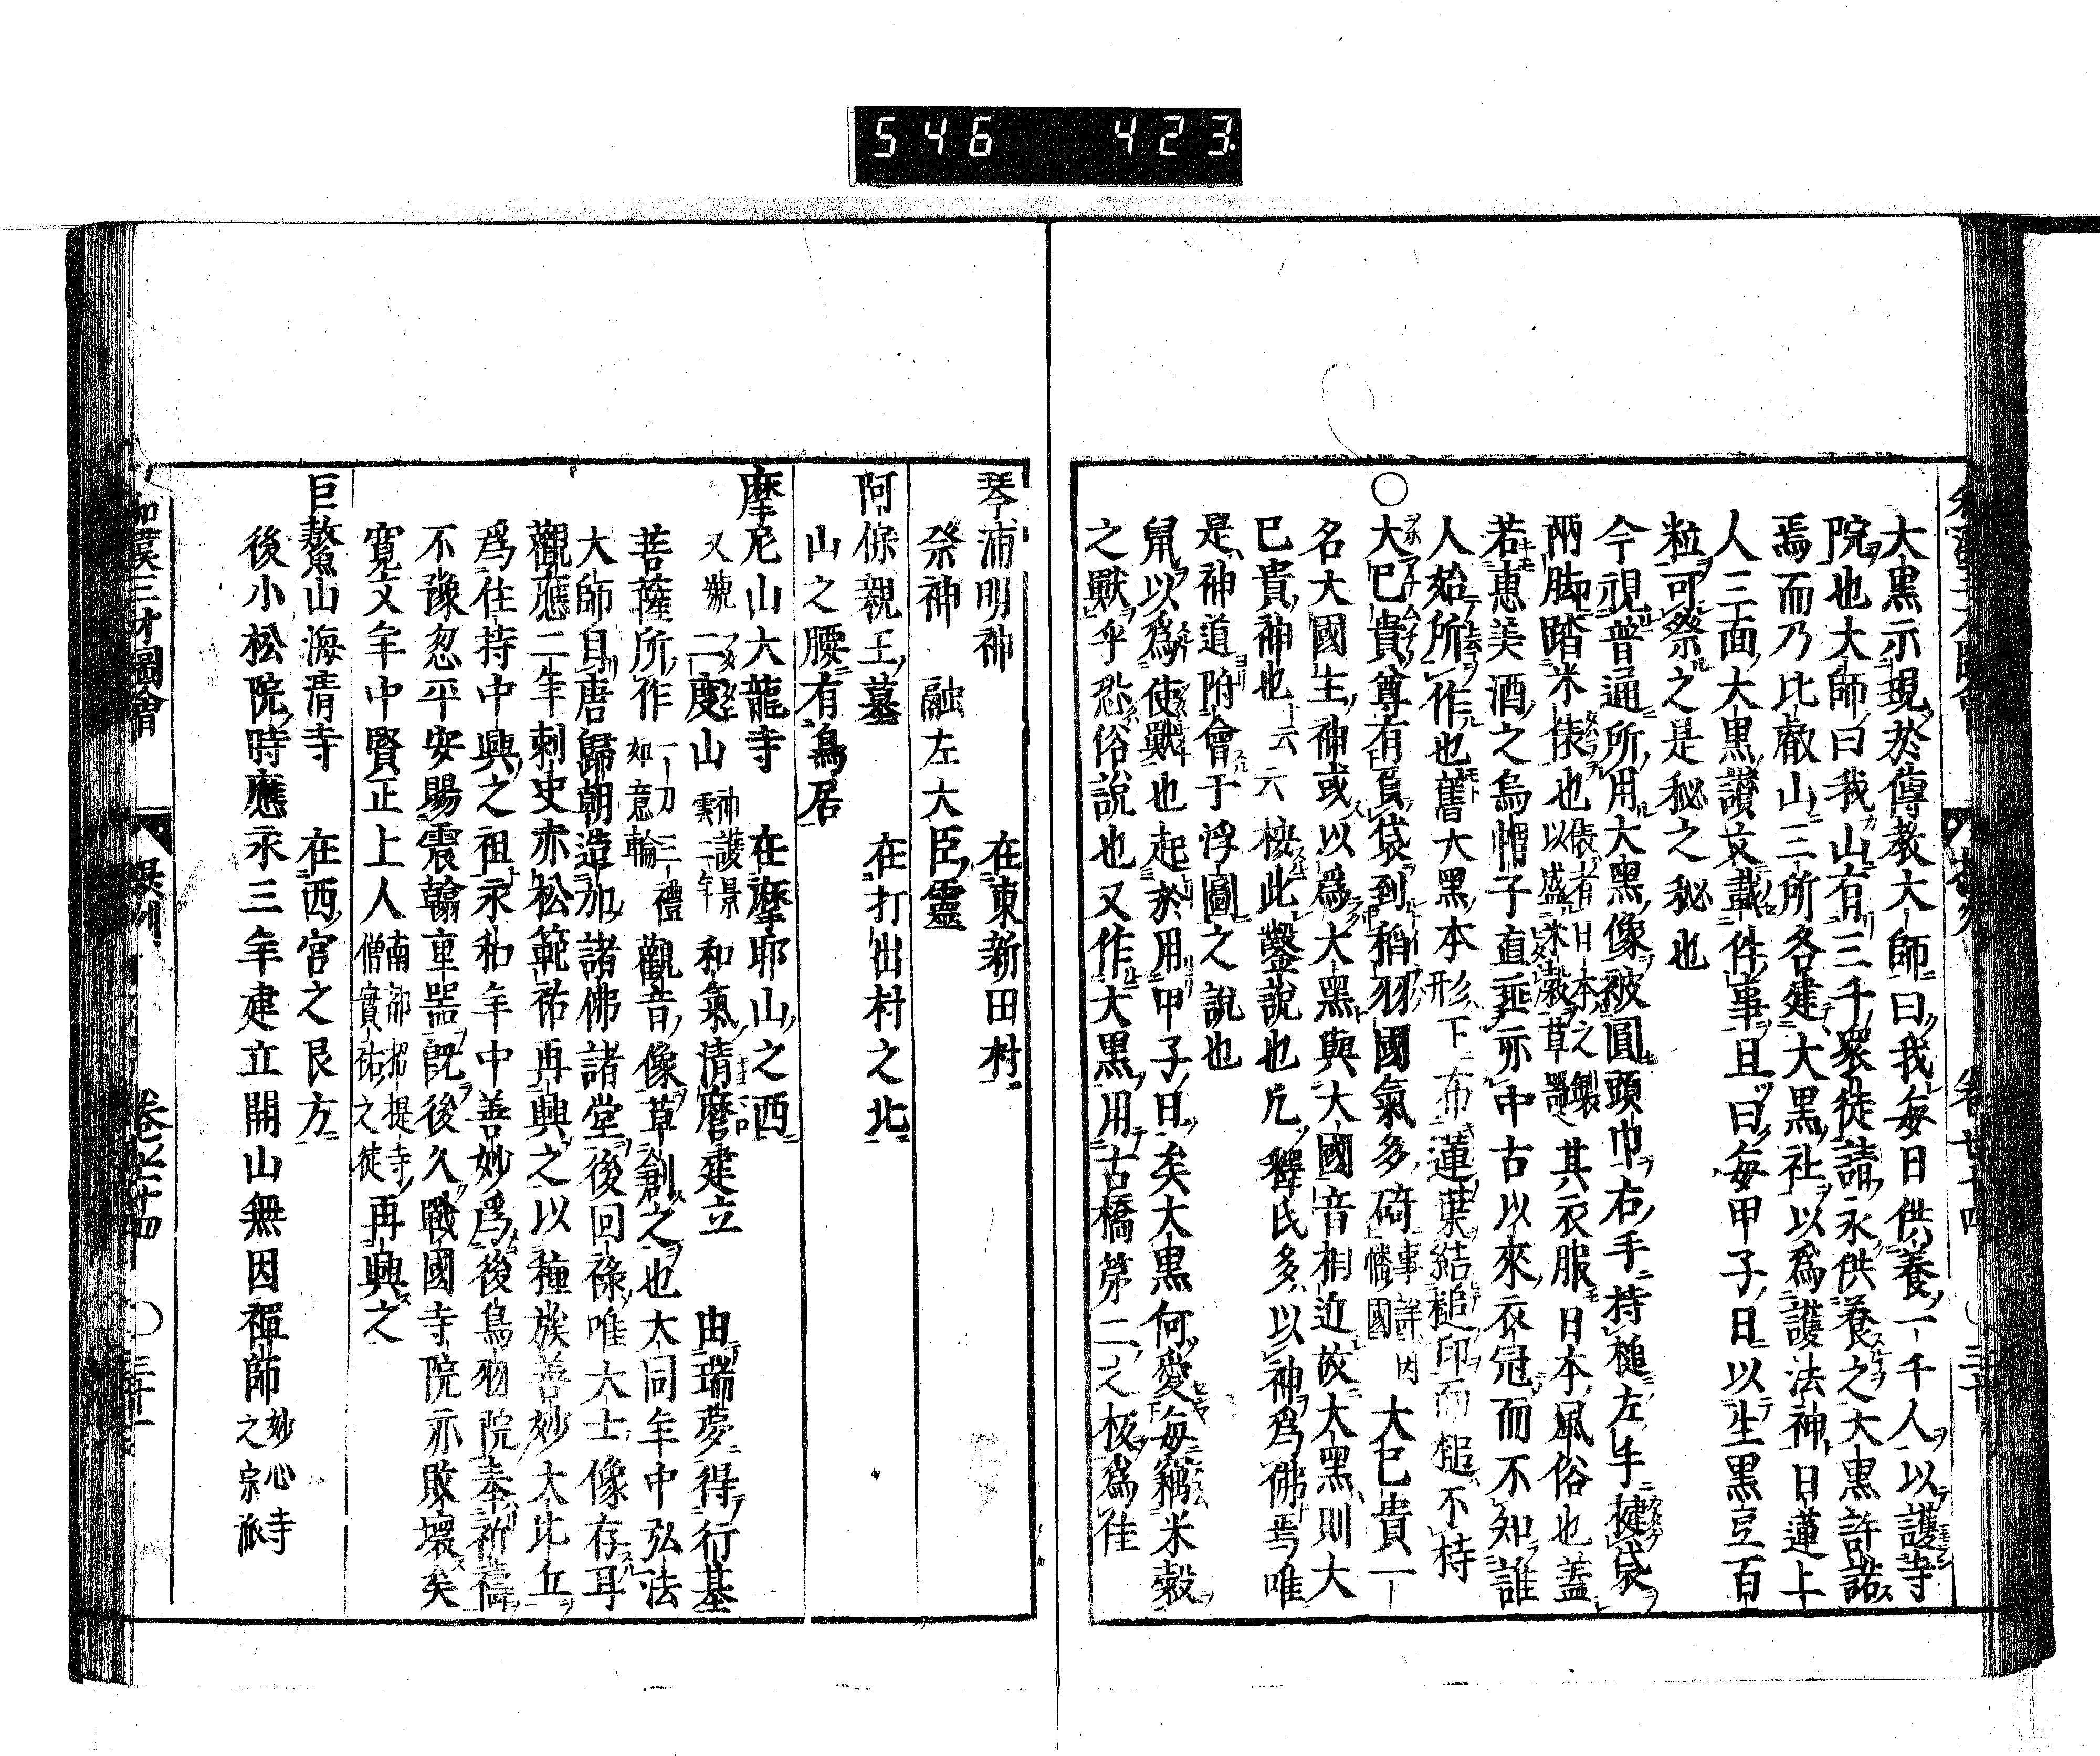 546 423
大黒示現於傳教大師曰我毎日供養一千人以護寺
院也大師曰我山有三千衆徒請永供養之大黒許諾
焉而乃比叡山三所各建大黒社以爲護法神日蓮上
人三面大黒讃文載件事且曰毎甲子日以生黒豆百
粒可祭之是秘之秘也
今視普通所用大黒像被圓頭巾右手持槌左手揵袋
兩脚踏米俵也俵者日本之製以盛米穀草器其衣服日本風俗也蓋
若惠美酒之烏帽子直垂亦中古以來衣冠而不知誰
人始所作也舊大黒本形下布蓮葉結槌印而槌不持
○大巳貴尊有負袋到稻羽國氣多碕事詳因幡國大巳貴一
名大國生神或以爲大黒與大國音相近故大黒則大
巳貴神也云云按此鑿説也凡釋氏多以神爲佛焉唯
是神道附會于浮圖之説也
鼠以爲使獸也起於用甲子日矣大黒何愛毎竊米穀
之獸乎恐俗説也又作大黒用古橋第二之板爲佳
琴浦明神 在東新田村
祭神 融左大臣靈
阿保親王墓 在打出村之北
山之腰有鳥居
摩尼山大龍寺 在摩耶山之西
又號二度山 神護景雲二年 和氣清麿建立 由瑞夢得行基
菩薩所作一刀三禮如意輪觀音像草創之也大同年中弘法
大師自唐歸朝造加諸佛諸堂後回祿唯大士像存耳
觀應二年刺史赤松範祐再興之以種族善妙大比丘
爲住持中興之祖永和年中善妙爲後鳥羽院奉祈禱
不豫忽平安賜震翰車器既後久戰國寺院亦敗壞矣
寛文年中賢正上人南都招提寺僧實祐之徒再興之
巨鰲山海清寺 在西宮之艮方
後小松院時應永三年建立開山無因禪師妙心寺之宗派
和漢三才圖會 攝州 卷七十四 ○三十一